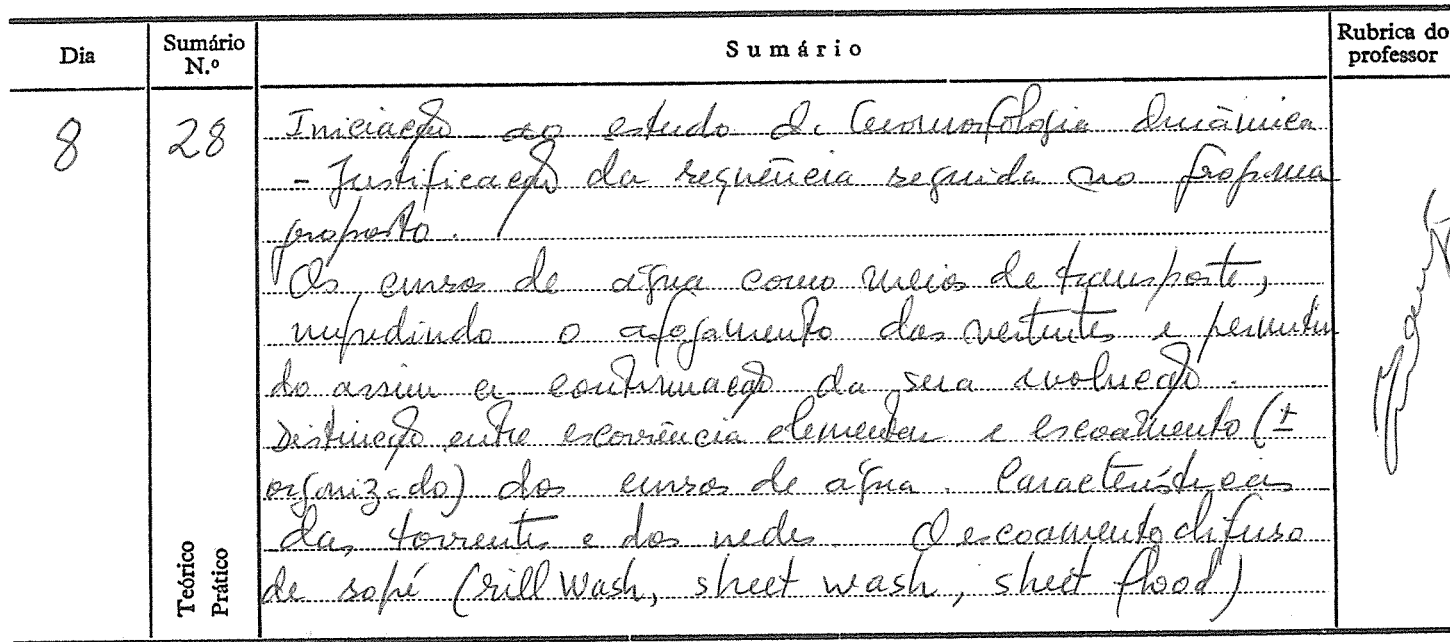 Dia
Sumário N.º
Sumário
Rubrica do professor
8
28
Iniciação ao estudo da Geomorfologia dinâmica
- Justificação da sequência seguida no programa
proposto.
Os cursos de água como meios de transporte,
impedindo o afogamento das vertentes e permitin
do assim a continuação da sua evolução.
Distinção entre escorrência elementar e escoamento (±
organizado) dos cursos de água. Características
das torrentes e dos uedes. O escoamento difuso
de sopé (rill wash, sheet wash, sheet flood)
Teórico
Prático